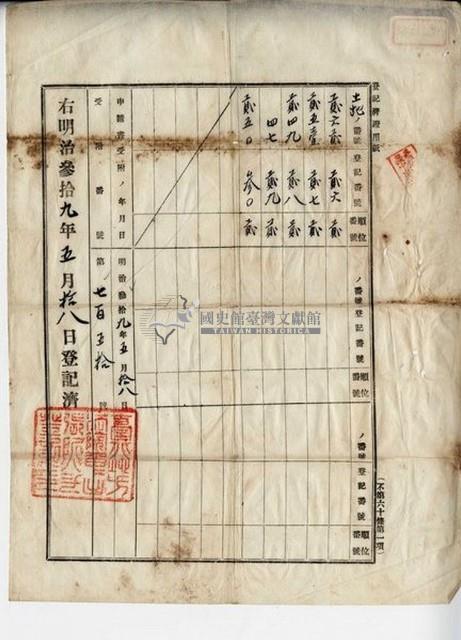 登記濟證用紙
土地ノ番號 登記番號 順位番號
貳六貳 貳六 貳
貳五壹 貳七 貳
貳四九 貳八 貳
四七 貳九 貳
貳五〇 參〇 貳
ノ番號 登記番號 順位番號
ノ番號 登記番號 順位番號
申請書受附ノ年月日 明治參拾九年五月拾八日
受附番號 第七百五拾號
右明治參拾九年五月拾八日登記濟
(不第六十條第一項)
國史館臺灣文獻館
TAIWAN HISTORICA